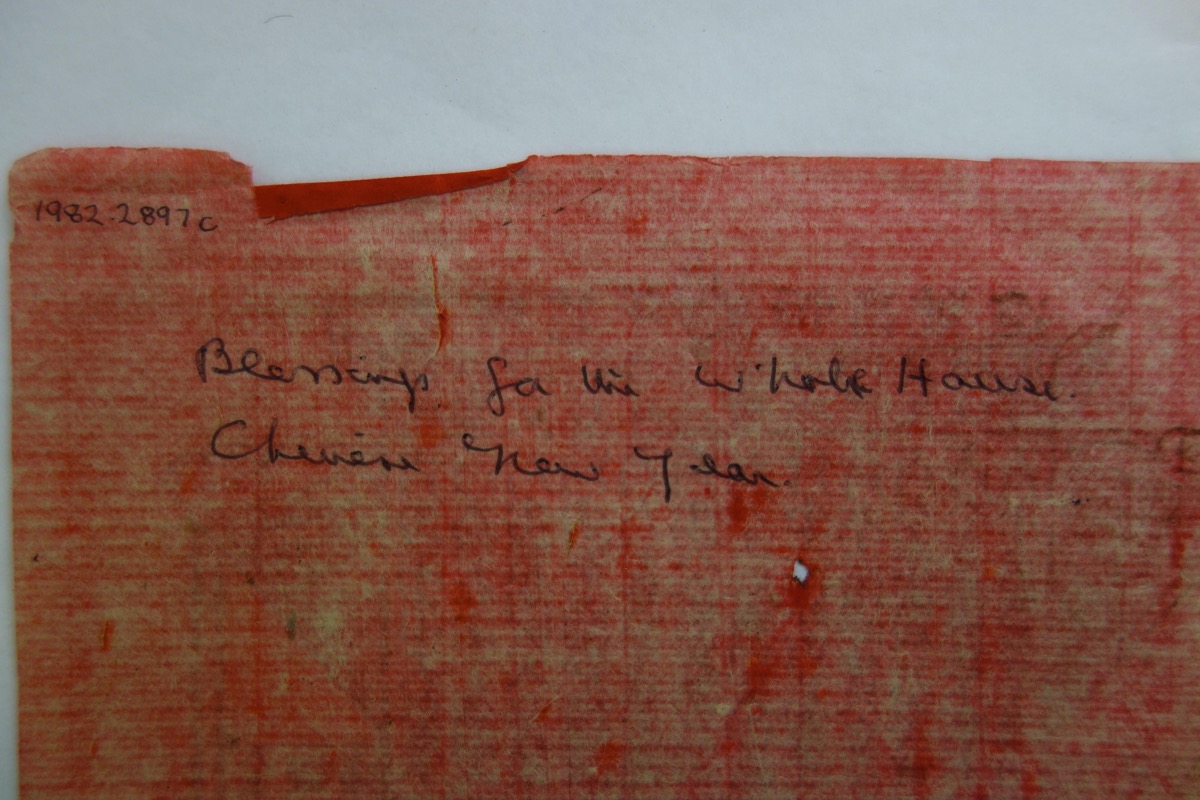 1982.2897c
Blessings for the Whole House.
Chinese New Year.